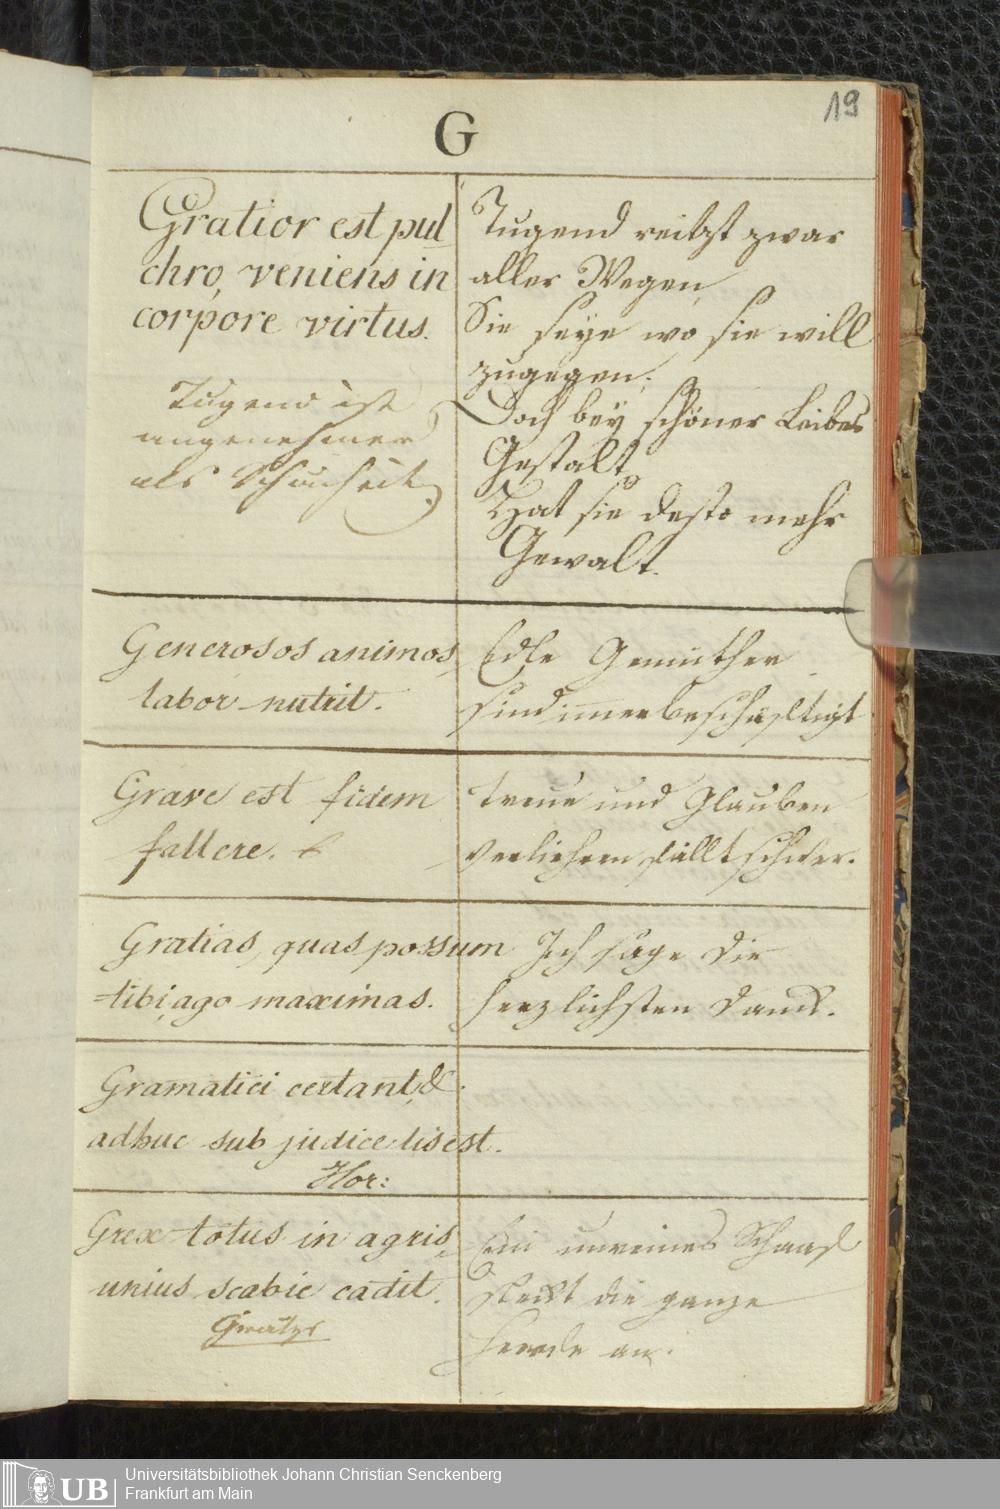 19
G
Gratior est pul
chro, veniens in
corpore virtus.
Tugend ist
angenehmer
als Schönheit.
Tugend reitzt zwar
aller Wegen,
Sie seye wo sie will
zugegen;
Doch bey schöner Leibes
Gestalt
Hat sie desto mehr
Gewalt.
Generosos animos,
labor nutrit.
Edle Gemüther
sind immer beschäftigt
Grave est fidem
fallere.
Treue und Glauben
verliehren fällt schwer.
Gratias, quas possum
tibi, ago maximas.
Ich sage die
herzlichsten Danck.
Gramatici certant, &
adhuc sub judice lis est.
Hor:
Grex totus in agris,
unius scabie cadit.
Ein unreines Schaaf
steckt die ganze
Heerde an.
UB
Universitätsbibliothek Johann Christian Senckenberg
Frankfurt am Main